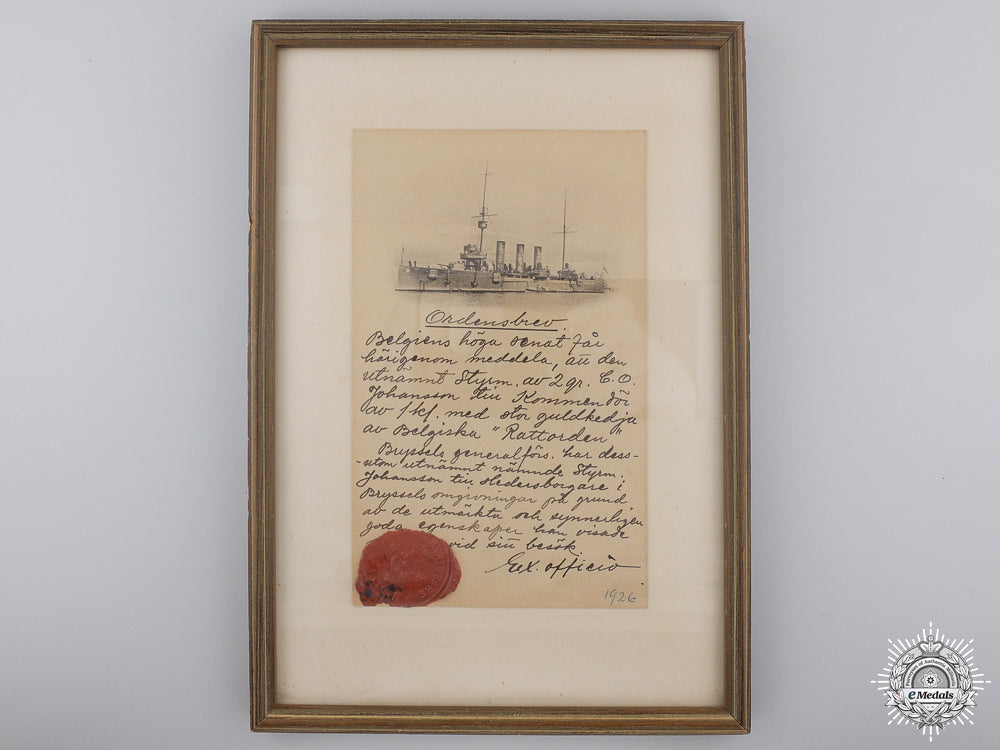 Ordensbrev.
Belgiens höga senat får
härigenom meddela, att den
utnämnt Styrm. av 2 gr. C. O.
Johansson till Kommendör
av 1 kl. med stor guldkedja
av Belgiska "Rattorden"
Bryssels generalförs. har dess-
-utom utnämnt nämnde Styrm.
Johansson till Hedersborgare i
Bryssels omgivningar på grund
av de utmärkta och synnerligen
goda egenskaper han visade
vid sitt besök.
Ex. officio
1926
eMedals